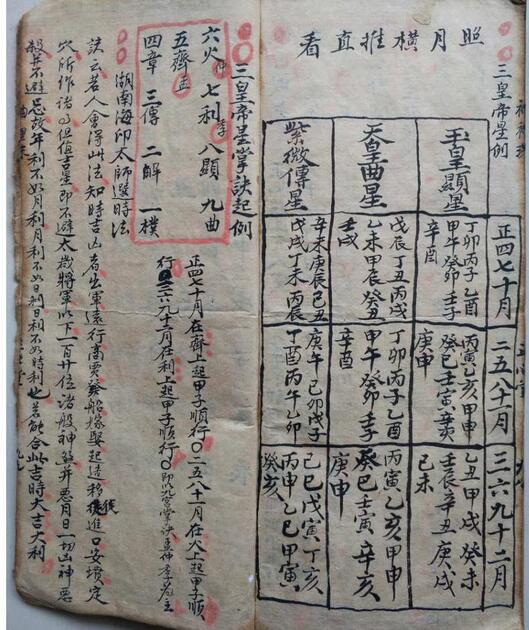 照月橫推直看
三皇帝星例
正四七十月
二五八十一月
三六九十二月
玉皇顯星
丁卯丙子乙酉
甲午癸卯壬子
辛酉
丙寅乙亥甲申
癸巳壬寅辛亥
庚申
乙丑甲戌癸未
壬辰辛丑庚戌
己未
天皇曲星
戊辰丁丑丙戌
乙未甲辰癸丑
壬戌
丁卯丙子乙酉
甲午癸卯壬子
辛酉
丙寅乙亥甲申
癸巳壬寅辛亥
庚申
紫微傳星
辛未庚辰己丑
戊戌丁未丙辰
庚午己卯戊子
丁酉丙午乙卯
己巳戊寅丁亥
丙申乙巳甲寅
癸亥
三皇帝星掌訣起例
六火仲七利季八顯九曲
五齊孟
四章三傳二解一樸
正四七十月在齊上起甲子順行〇二五八十一月在火上起甲子順
行〇三六九十二月在利上起甲子順行〇即以九宮掌訣孟仲季為主
湖南海印太師選時法
訣云若人會得此法知時吉凶者出軍遠行商賈發船嫁娶起造移徙進口安墳定
穴所作諸了但值吉星即不避太歲將軍以下一百廿位諸般神煞并惡月日一切凶神惡
煞並不避忌故年利不如月利月利不如日利日利不如時利也若能合此吉時大吉大利